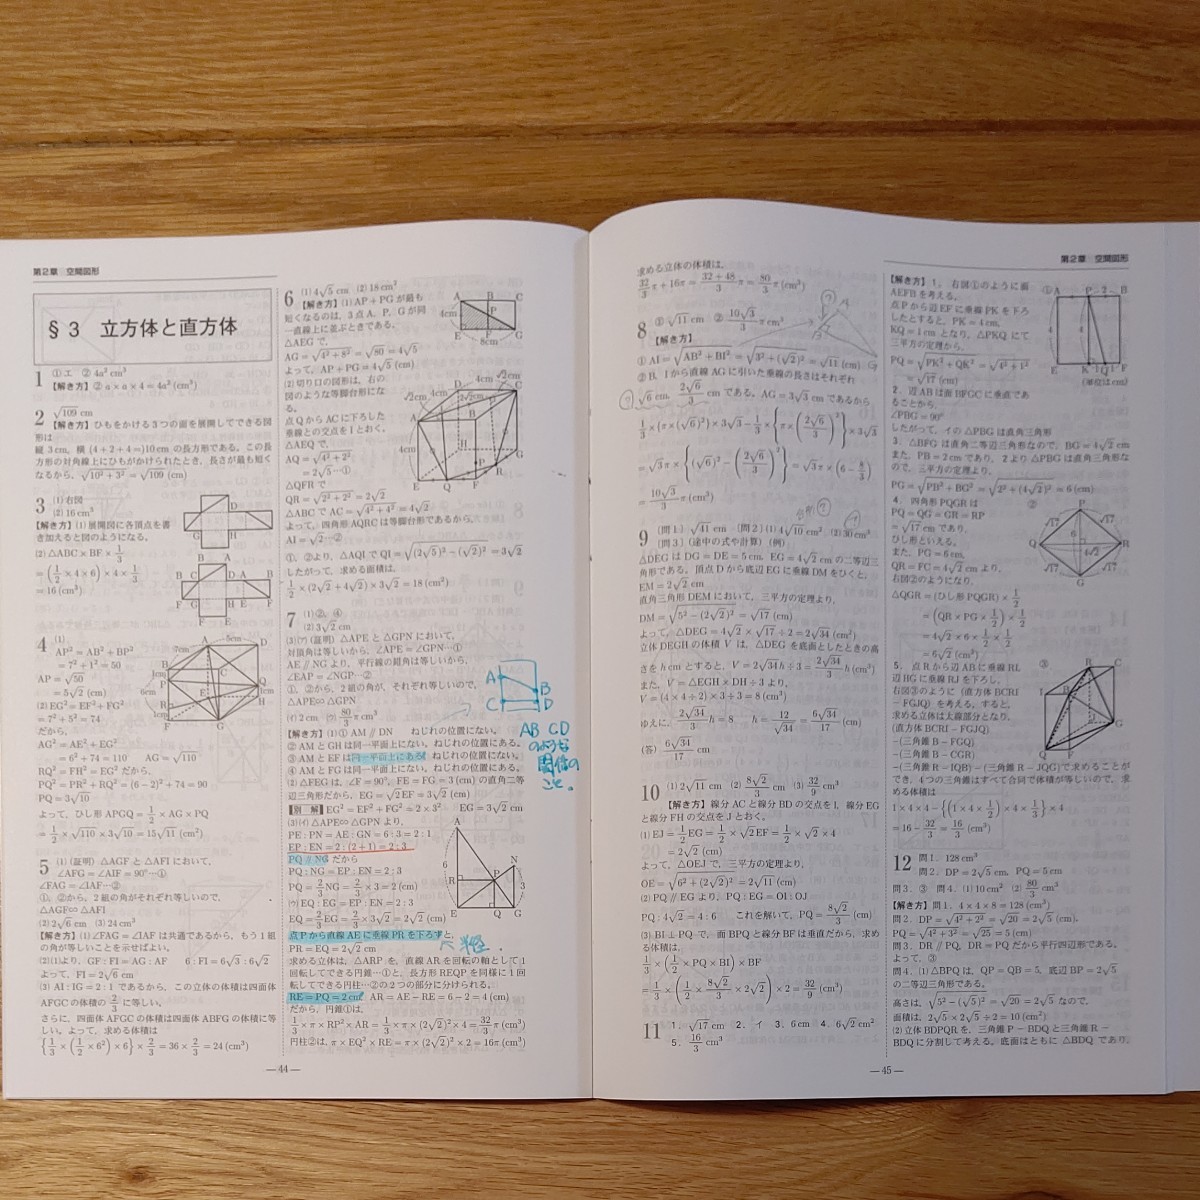 第2章 空間図形
§3 立方体と直方体
1 ①エ ②4a²cm³
【解き方】②a×a×4=4a²(cm³)
2 √109 cm
【解き方】ひもをかける3つの面を展開してできる図形は
縦3cm, 横(4+2+4=)10cmの長方形である。この長
方形の対角線上にひもがかけられたとき, 長さが最も短く
なるから, √(10²+3²)=√109(cm)
3 (1)右図
(2)16cm³
【解き方】(1)展開図に各頂点を書
き加えると図のようになる。
(2)△ABC×BF×1/3
=(1/2×4×6)×4×1/3
=16(cm³)
4 (1)
AP²=AB²+BP²
=7²+1²=50
AP=√50
=5√2(cm)
(2)EG²=EF²+FG²
=7²+5²=74
だから,
AG²=AE²+EG²
=6²+74=110 AG=√110
RQ²=FH²=EG²だから,
PQ²=PR²+RQ²=(6-2)²+74=90
PQ=3√10
よって, ひし形APGQ=1/2×AG×PQ
=1/2×√110×3√10=15√11(cm²)
5 (1)(証明)△AGFと△AFIにおいて,
∠AFG=∠AIF=90°…①
∠FAG=∠IAF…②
①, ②から, 2組の角がそれぞれ等しいので,
△AGF∽△AFI
(2)2√6cm (3)24cm³
【解き方】(1)∠FAG=∠IAFは共通であるから, もう1組
の角が等しいことを示せばよい。
(2)(1)より, GF:FI=AG:AF 6:FI=6√3:6√2
よって, FI=2√6cm
(3)AI:IG=2:1であるから, この立体の体積は四面体
AFGCの体積の2/3に等しい。
さらに, 四面体AFGCの体積は四面体ABFGの体積に等
しい。よって, 求める体積は
{1/3×(1/2×6²)×6}×2/3=36×2/3=24(cm³)
6 (1)4√5cm (2)18cm²
【解き方】(1)AP+PGが最も
短くなるのは, 3点A, P, Gが同
一直線上に並ぶときである。
△AEGで,
AG=√(4²+8²)=√80=4√5
よって, AP+PG=4√5(cm)
(2)切り口の図形は, 右の
図のような等脚台形にな
る。
点QからACに下ろした
垂線との交点をIとおく。
△AEQで,
AQ=√(4²+2²)
=2√5…①
△QFRで
QR=√(2²+2²)=2√2
△ABCでAC=√(4²+4²)=4√2
よって, 四角形AQRCは等脚台形であるから,
AI=√2…②
①, ②より, △AQIでQI=√((2√5)²-(√2)²)=3√2
したがって, 求める面積は,
1/2×(2√2+4√2)×3√2=18(cm²)
7 (1)②, ④
(2)3√2cm
(3)(ア)(証明)△APEと△GPNにおいて,
対頂角は等しいから, ∠APE=∠GPN…①
AE∥NGより, 平行線の錯角は等しいから,
∠EAP=∠NGP…②
①, ②から, 2組の角が, それぞれ等しいので,
△APE∽△GPN
(イ)2cm (ウ)80/3πcm³
【解き方】(1)①AM∥DN ねじれの位置にない。
②AMとGHは同一平面上にない。ねじれの位置にある。
③AMとEFは同一平面上にある。ねじれの位置にない。
④AMとFGは同一平面上にない。ねじれの位置にある。
(2)△FEGは, ∠F=90°, FE=FG=3(cm)の直角二等
辺三角形だから, EG=√2EF=3√2(cm)
【別解】EG²=EF²+FG²=2×3² EG=3√2cm
(3)(イ)△APE∽△GPNより,
PE:PN=AE:GN=6:3=2:1
EP:EN=2:(2+1)=2:3
PQ∥NGだから
PQ:NG=EP:EN=2:3
PQ=2/3NG=2/3×3=2(cm)
(ウ)EQ:EG=EP:EN=2:3
EQ=2/3EG=2/3×3√2=2√2(cm)
点Pから直線AEに垂線PRを下ろすと,
PR=EQ=2√2cm
半径.
求める立体は, △ARPを, 直線ARを回転の軸として1
回転してできる円錐…①と, 長方形REQPを同様に1回
転してできる円柱…②の2つの部分に分けられる。
RE=PQ=2cm AR=AE-RE=6-2=4(cm)
だから, 円錐①は,
1/3×π×RP²×AR=1/3×π×(2√2)²×4=32/3π(cm³)
円柱②は, π×EQ²×RE=π×(2√2)²×2=16π(cm³)
AB CD
のような
関係の
こと。
―44―
第2章 空間図形
求める立体の体積は,
32/3π+16π=(32+48)/3π=80/3π(cm³)
8 ①√11cm ②10√3/3πcm³
【解き方】
①AI=√(AB²+BI²)=√(3²+(√2)²)=√11(cm)
②B, Iから直線AGに引いた垂線の長さはそれぞれ
√6cm, 2√6/3cmである。AG=3√3cmであるから
1/3×{π×(√6)²}×3√3-1/3×{π×(2√6/3)²}×3√3
=√3π×{(√6)²-(2√6/3)²}=√3π×(6-8/3)
=10√3/3π(cm³)
9 (問1)√41cm (問2)(1)4√10cm (2)30cm²
(問3)(途中の式や計算)(例)
△DEGはDG=DE=5cm, EG=4√2cmの二等辺三
角形である。頂点Dから底辺EGに垂線DMをひくと,
EM=2√2cm
直角三角形DEMにおいて, 三平方の定理より,
DM=√(5²-(2√2)²)=√17(cm)
よって, △DEG=4√2×√17÷2=2√34(cm²)
立体DEGHの体積Vは, △DEGを底面としたときの高
さをhcmとすると, V=2√34h÷3=2√34/3h(cm³)
また, V=△EGH×DH÷3より,
V=(4×4÷2)×3÷3=8(cm³)
ゆえに, 2√34/3h=8 h=12/√34=6√34/17(cm)
(答)6√34/17cm
10 (1)2√11cm (2)8√2/3cm (3)32/9cm³
【解き方】線分ACと線分BDの交点をI, 線分EG
と線分FHの交点をJとおく。
(1)EJ=1/2EG=1/2×√2EF=1/2×√2×4
=2√2(cm)
よって, △OEJで, 三平方の定理より,
OE=√(6²+(2√2)²)=2√11(cm)
(2)PQ∥EGより, PQ:EG=OI:OJ
PQ:4√2=4:6 これを解いて, PQ=8√2/3(cm)
(3)BI⊥PQで, 面BPQと線分BFは垂直だから, 求め
る体積は,
1/3×(1/2×PQ×BI)×BF
=1/3×(1/2×8√2/3×2√2)×2=32/9(cm³)
11 1. √17cm 2. イ 3. 6cm 4. 6√2cm²
5. 16/3cm³
【解き方】1. 右図①のように面
AEFBを考える。
点Pから辺EFに垂線PKを下ろ
したとすると, PK=4cm,
KQ=1cmとなり, △PKQにて
三平方の定理から,
PQ=√(PK²+QK²)=√(4²+1²)
=√17(cm)
(単位はcm)
2. 辺ABは面BFGCに垂直であ
ることから,
∠PBG=90°
したがって, イの△PBGは直角三角形
3. △BFGは直角二等辺三角形なので, BG=4√2cm
また, PB=2cmであり, 2より△PBGは直角三角形な
ので, 三平方の定理より,
PG=√(PB²+BG²)=√(2²+(4√2)²)=6(cm)
4. 四角形PQGRは
PQ=QG=GR=RP
=√17cmであり,
ひし形といえる。
また, PG=6cm,
QR=FC=4√2cmより,
右図②のようになり,
△QGR=(ひし形PQGR)×1/2
=(QR×PG×1/2)×1/2
=4√2×6×1/2×1/2
=6√2(cm²)
5. 点Rから辺ABに垂線RI,
辺HGに垂線RJを下ろし,
右図③のように(直方体BCRI
-FGJQ)を考える。すると,
求める立体は太線部分となり,
(直方体BCRI-FGJQ)
-(三角錐B-FGQ)
-(三角錐B-CGR)
-(三角錐R-IQB)-(三角錐R-JQG)で求めることが
でき, 4つの三角錐はすべて合同で体積が等しいので, 求
める体積は
1×4×4-{(1×4×1/2)×4×1/3}×4
=16-32/3=16/3(cm³)
12 問1. 128cm³
問2. DP=2√5cm, PQ=5cm
問3. ③ 問4. (1)10cm² (2)80/3cm³
【解き方】問1. 4×4×8=128(cm³)
問2. DP=√(4²+2²)=√20=2√5(cm),
PQ=√(4²+3²)=√25=5(cm)
問3. DR∥PQ, DR=PQだから平行四辺形である。
よって, ③
問4. (1)△BPQは, QP=QB=5, 底辺BP=2√5
の二等辺三角形である。
高さは, √(5²-(√5)²)=√20=2√5なので,
面積は, 2√5×2√5÷2=10(cm²)
(2)立体BDPQRを, 三角錐P-BDQと三角錐R-
BDQに分割して考える。底面はともに△BDQであり,
―45―